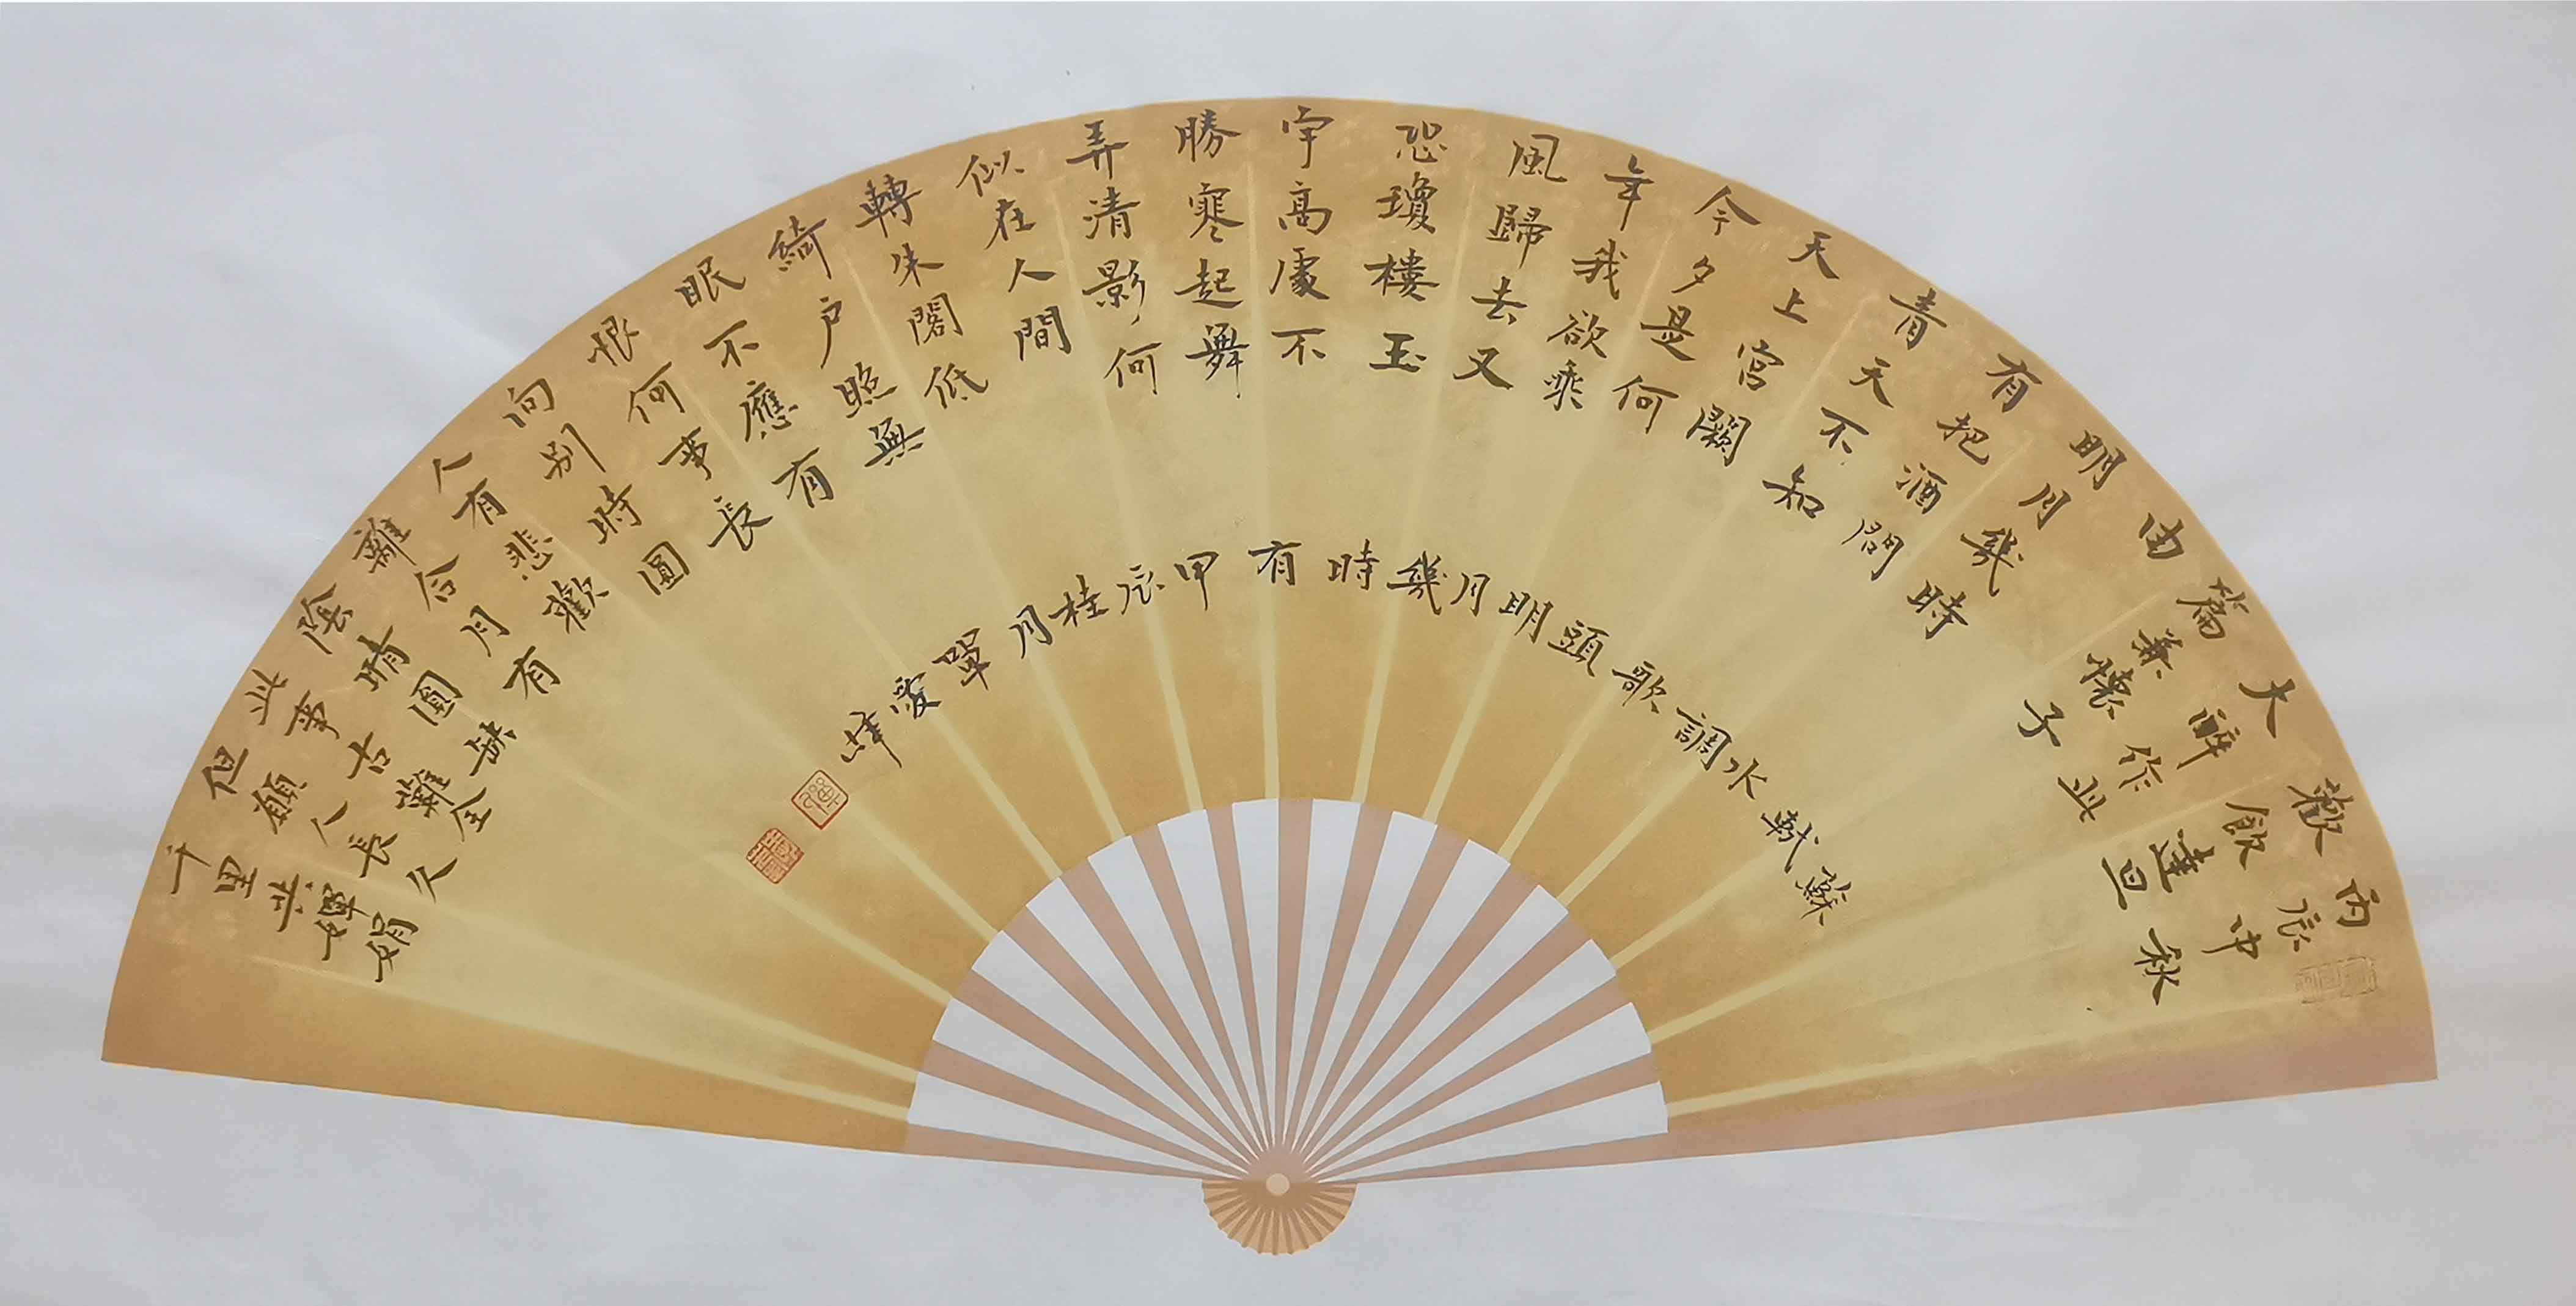 丙辰中秋
歡飲達旦
大醉作此
篇兼懷子
由
明月幾時
有把酒問
青天不知
天上宮闕
今夕是何
年我欲乘
風歸去又
恐瓊樓玉
宇高處不
勝寒起舞
弄清影何
似在人間
轉朱閣低
綺户照無
眠不應有
恨何事長
向別時圓
人有悲歡
離合月有
陰晴圓缺
此事古難全
但願人長久
千里共嬋娟
蘇軾水調歌頭明月幾時有甲辰桂月單愛峰